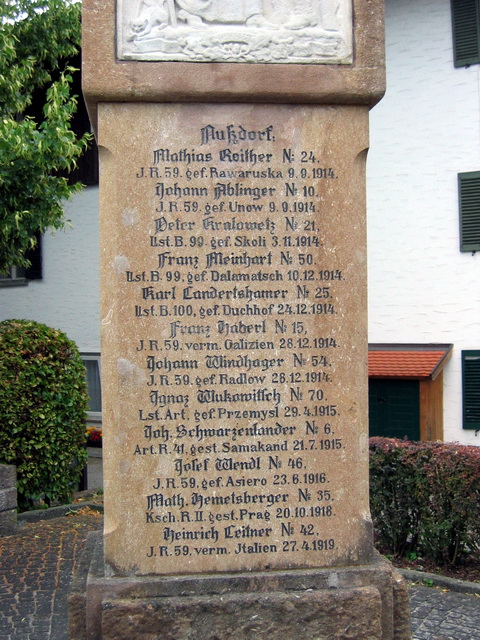 Nußdorf:
Mathias Roither No 24,
J.R.59. gef. Rawaruska 9.9.1914.
Johann Ablinger No 10,
J.R.59. gef. Unow 9.9.1914.
Peter Kralowetz No 21,
Lst.B.99. gef. Skoli 3.11.1914.
Franz Meinhart No 50,
Lst.B.99, gef. Dalamatsch 10.12.1914.
Karl Landertshamer No 25,
Lst.B.100, gef. Duchhof 24.12.1914.
Franz Haberl No 15,
J.R.59. verm. Galizien 28.12.1914.
Johann Windhager No 54,
J.R.59. gef. Radlow 28.12.1914.
Ignaz Wukowitsch No 70,
Lst. Art. gef. Przemysl 29.4.1915.
Joh. Schwarzenlander No 6,
Art.R.41. gest. Samakand 21.7.1915.
Josef Wendl No 46,
J.R.59. gef. Asiero 23.6.1916.
Math. Hemetsberger No 35,
Ksch.R.II. gest. Prag 20.10.1918.
Heinrich Leitner No 42,
J.R.59, verm. Italien 27.4.1919.